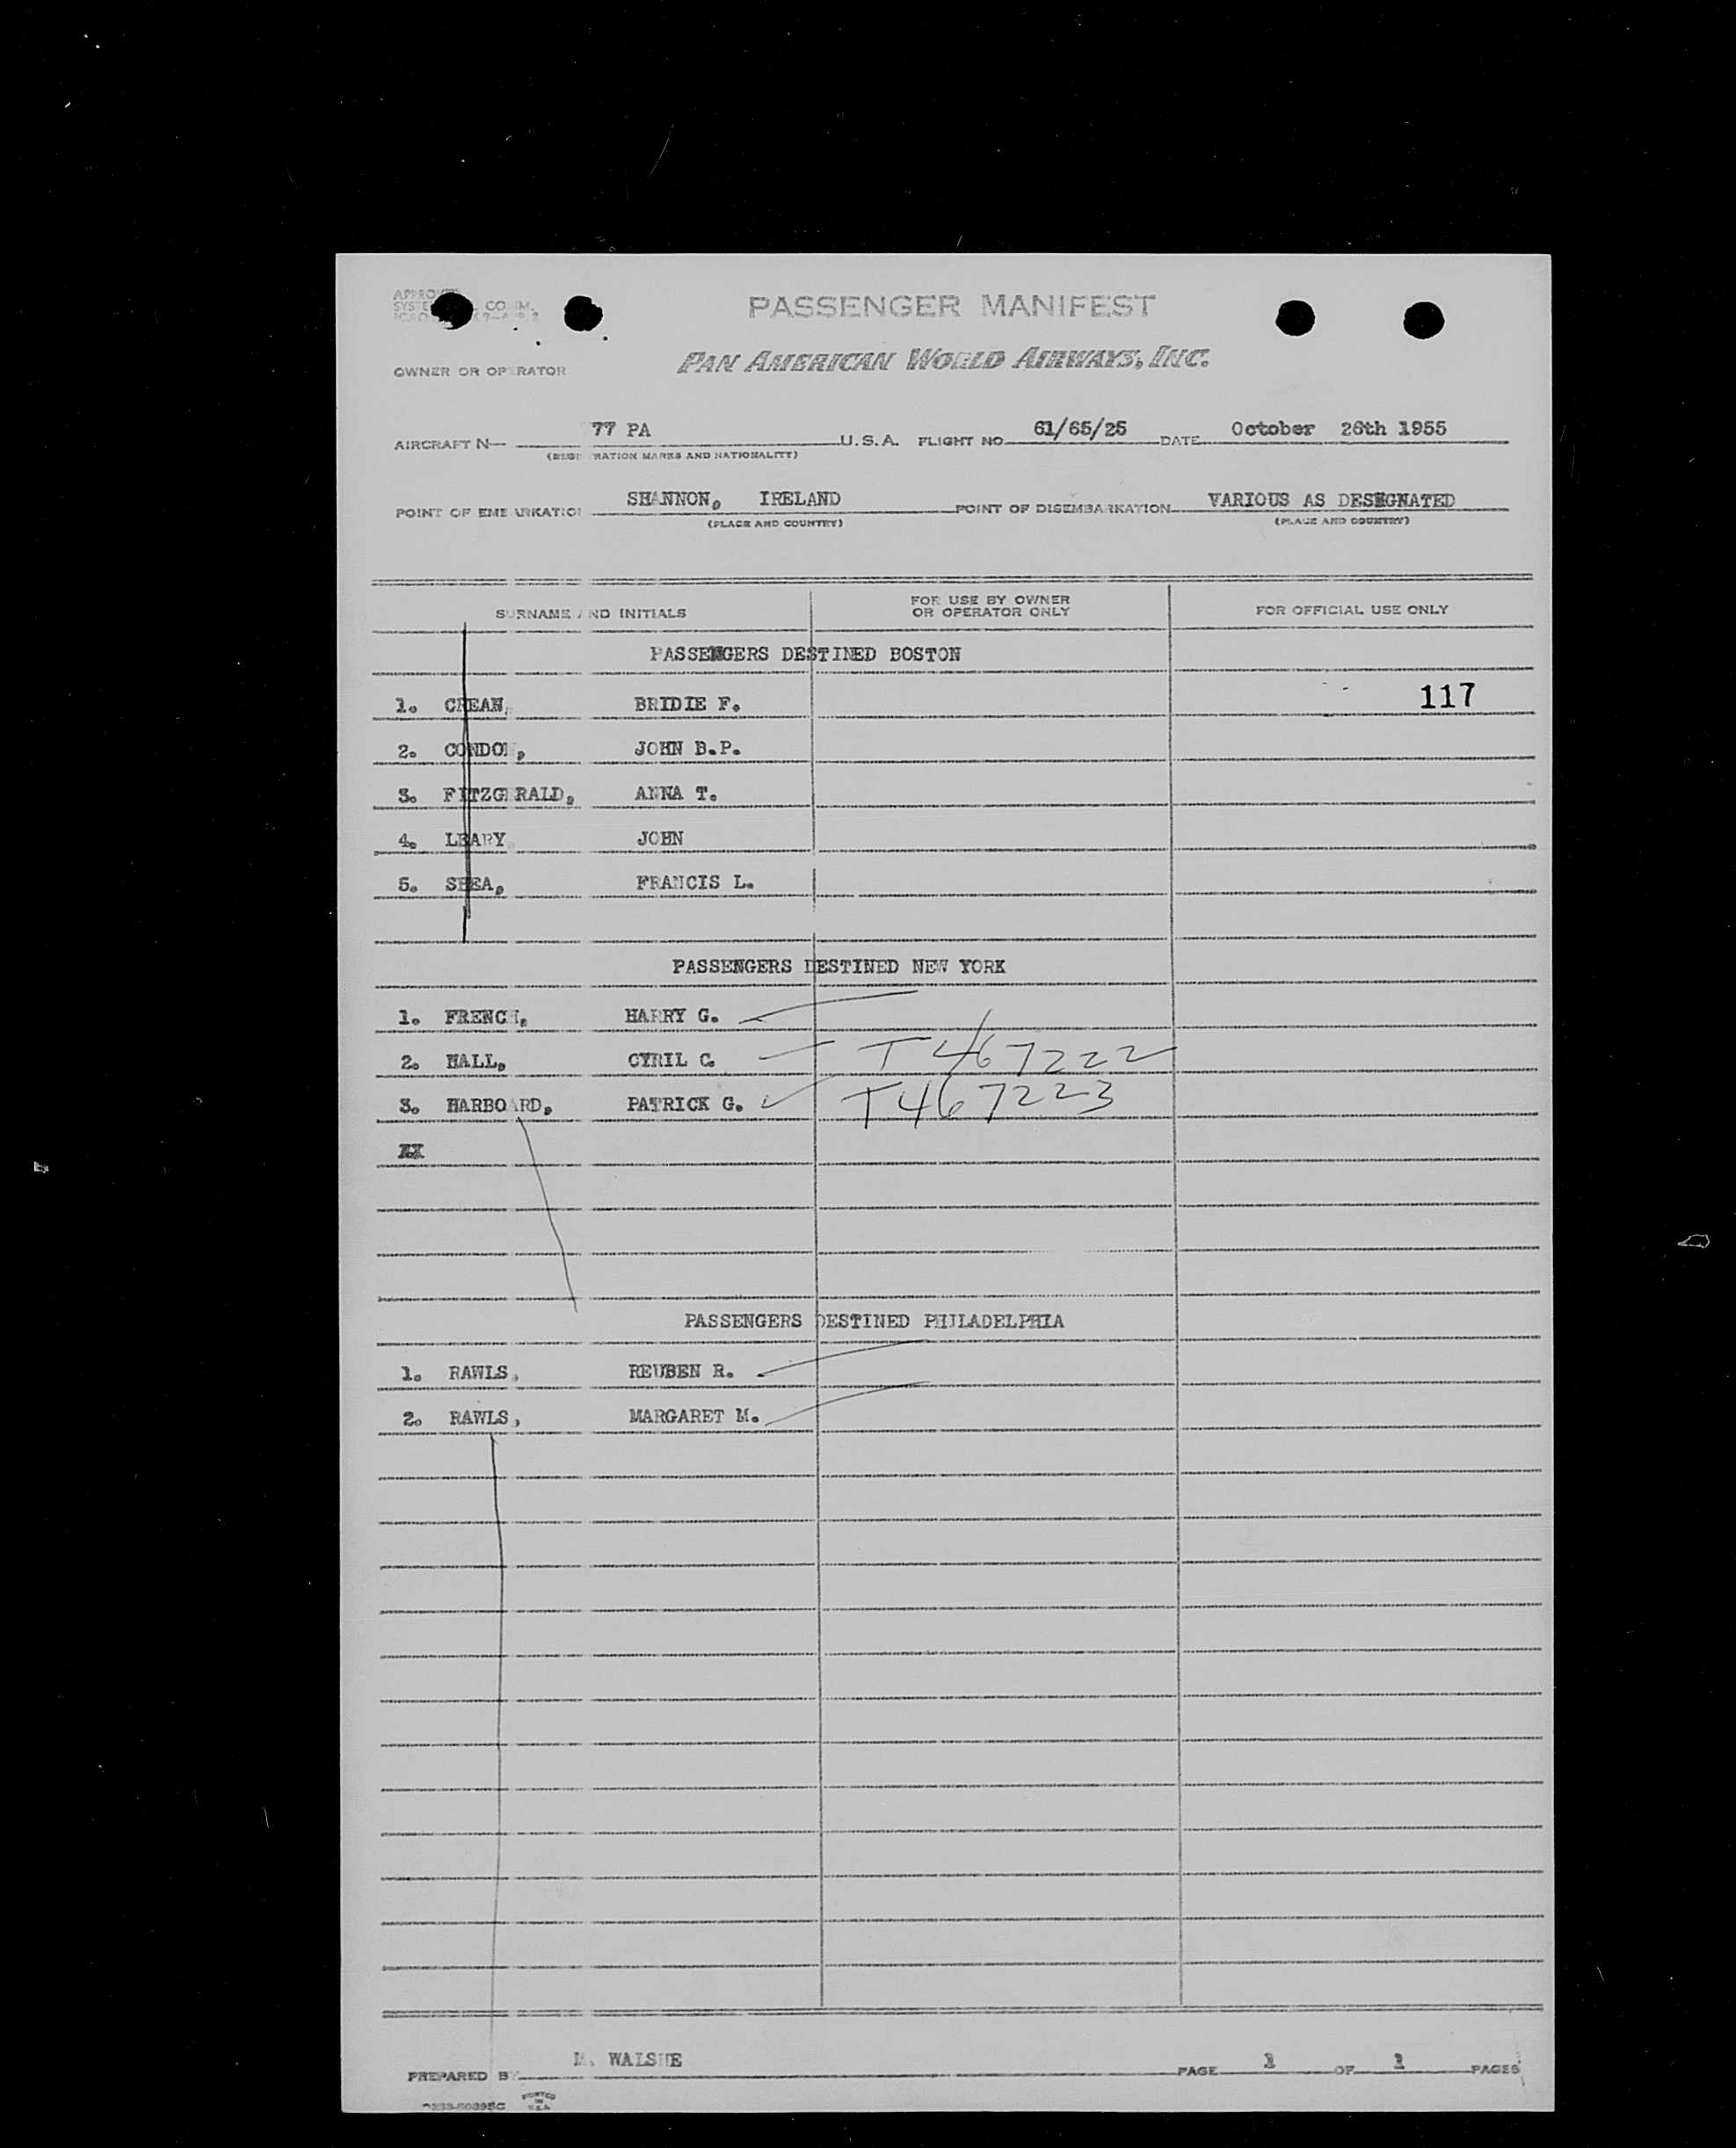 PASSENGER MANIFEST
OWNER OR OPERATOR PAN AMERICAN WORLD AIRWAYS, INC.
AIRCRAFT N— 77 PA U.S.A. FLIGHT NO. 61/65/25 DATE October 26th 1955
(REGISTRATION MARKS AND NATIONALITY)
POINT OF EMBARKATION SHANNON, IRELAND POINT OF DISEMBARKATION VARIOUS AS DESIGNATED
(PLACE AND COUNTRY) (PLACE AND COUNTRY)
SURNAME AND INITIALS FOR USE BY OWNER OR OPERATOR ONLY FOR OFFICIAL USE ONLY
PASSENGERS DESTINED BOSTON
1. CREAN, BRIDIE F. 117
2. CONDON, JOHN B.P.
3. FITZGERALD, ANNA T.
4. LEARY, JOHN
5. SHEA, FRANCIS L.
PASSENGERS DESTINED NEW YORK
1. FRENCH, HARRY G.
2. HALL, CYRIL C. T467222
3. HARBOARD, PATRICK G. T467223
PASSENGERS DESTINED PHILADELPHIA
1. RAWLS, REUBEN R.
2. RAWLS, MARGARET M.
PREPARED BY M. WALSHE PAGE 1 OF 1 PAGES
PRINTED IN U.S.A.